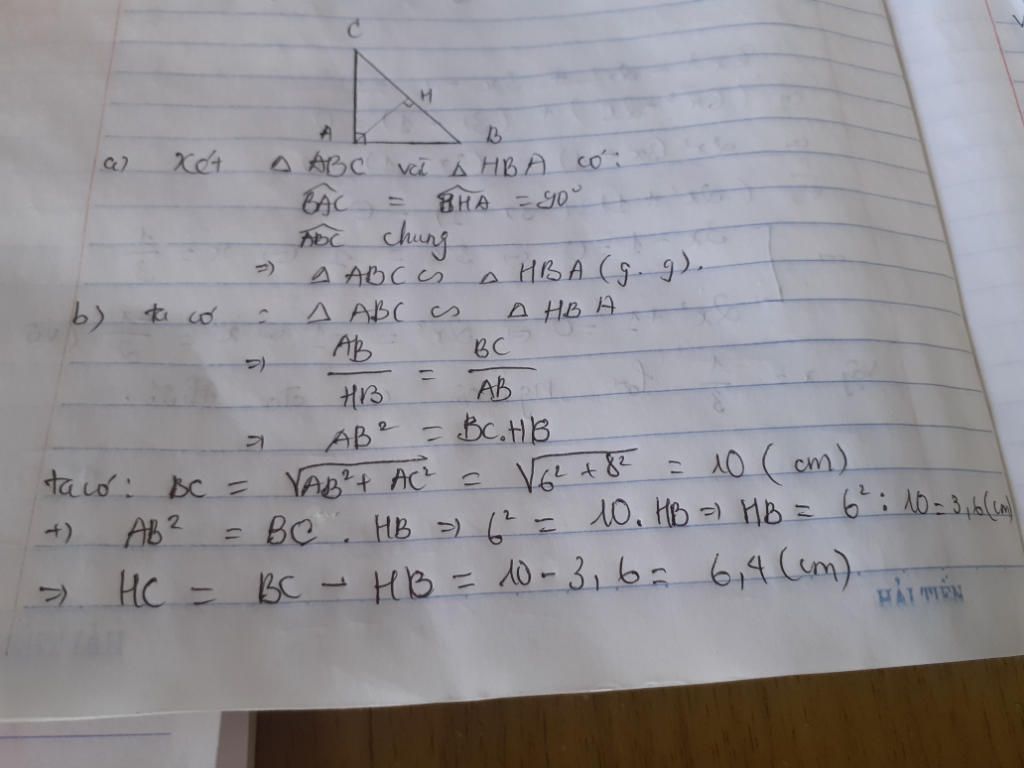 C
H
A
B
a) Xét △ ABC với △ HBA có:
BAC = BHA = 90°
ABC chung
=> △ ABC ∽ △ HBA (g.g).
b) ta có : △ ABC ∽ △ HBA
=> AB/HB = BC/AB
=> AB² = BC.HB
ta có: BC = √AB² + AC² = √6² + 8² = 10 ( cm)
+) AB² = BC . HB => 6² = 10. HB => HB = 6² : 10 = 3,6 (cm)
=> HC = BC - HB = 10 - 3,6 = 6,4 (cm)
HẢI TIẾN